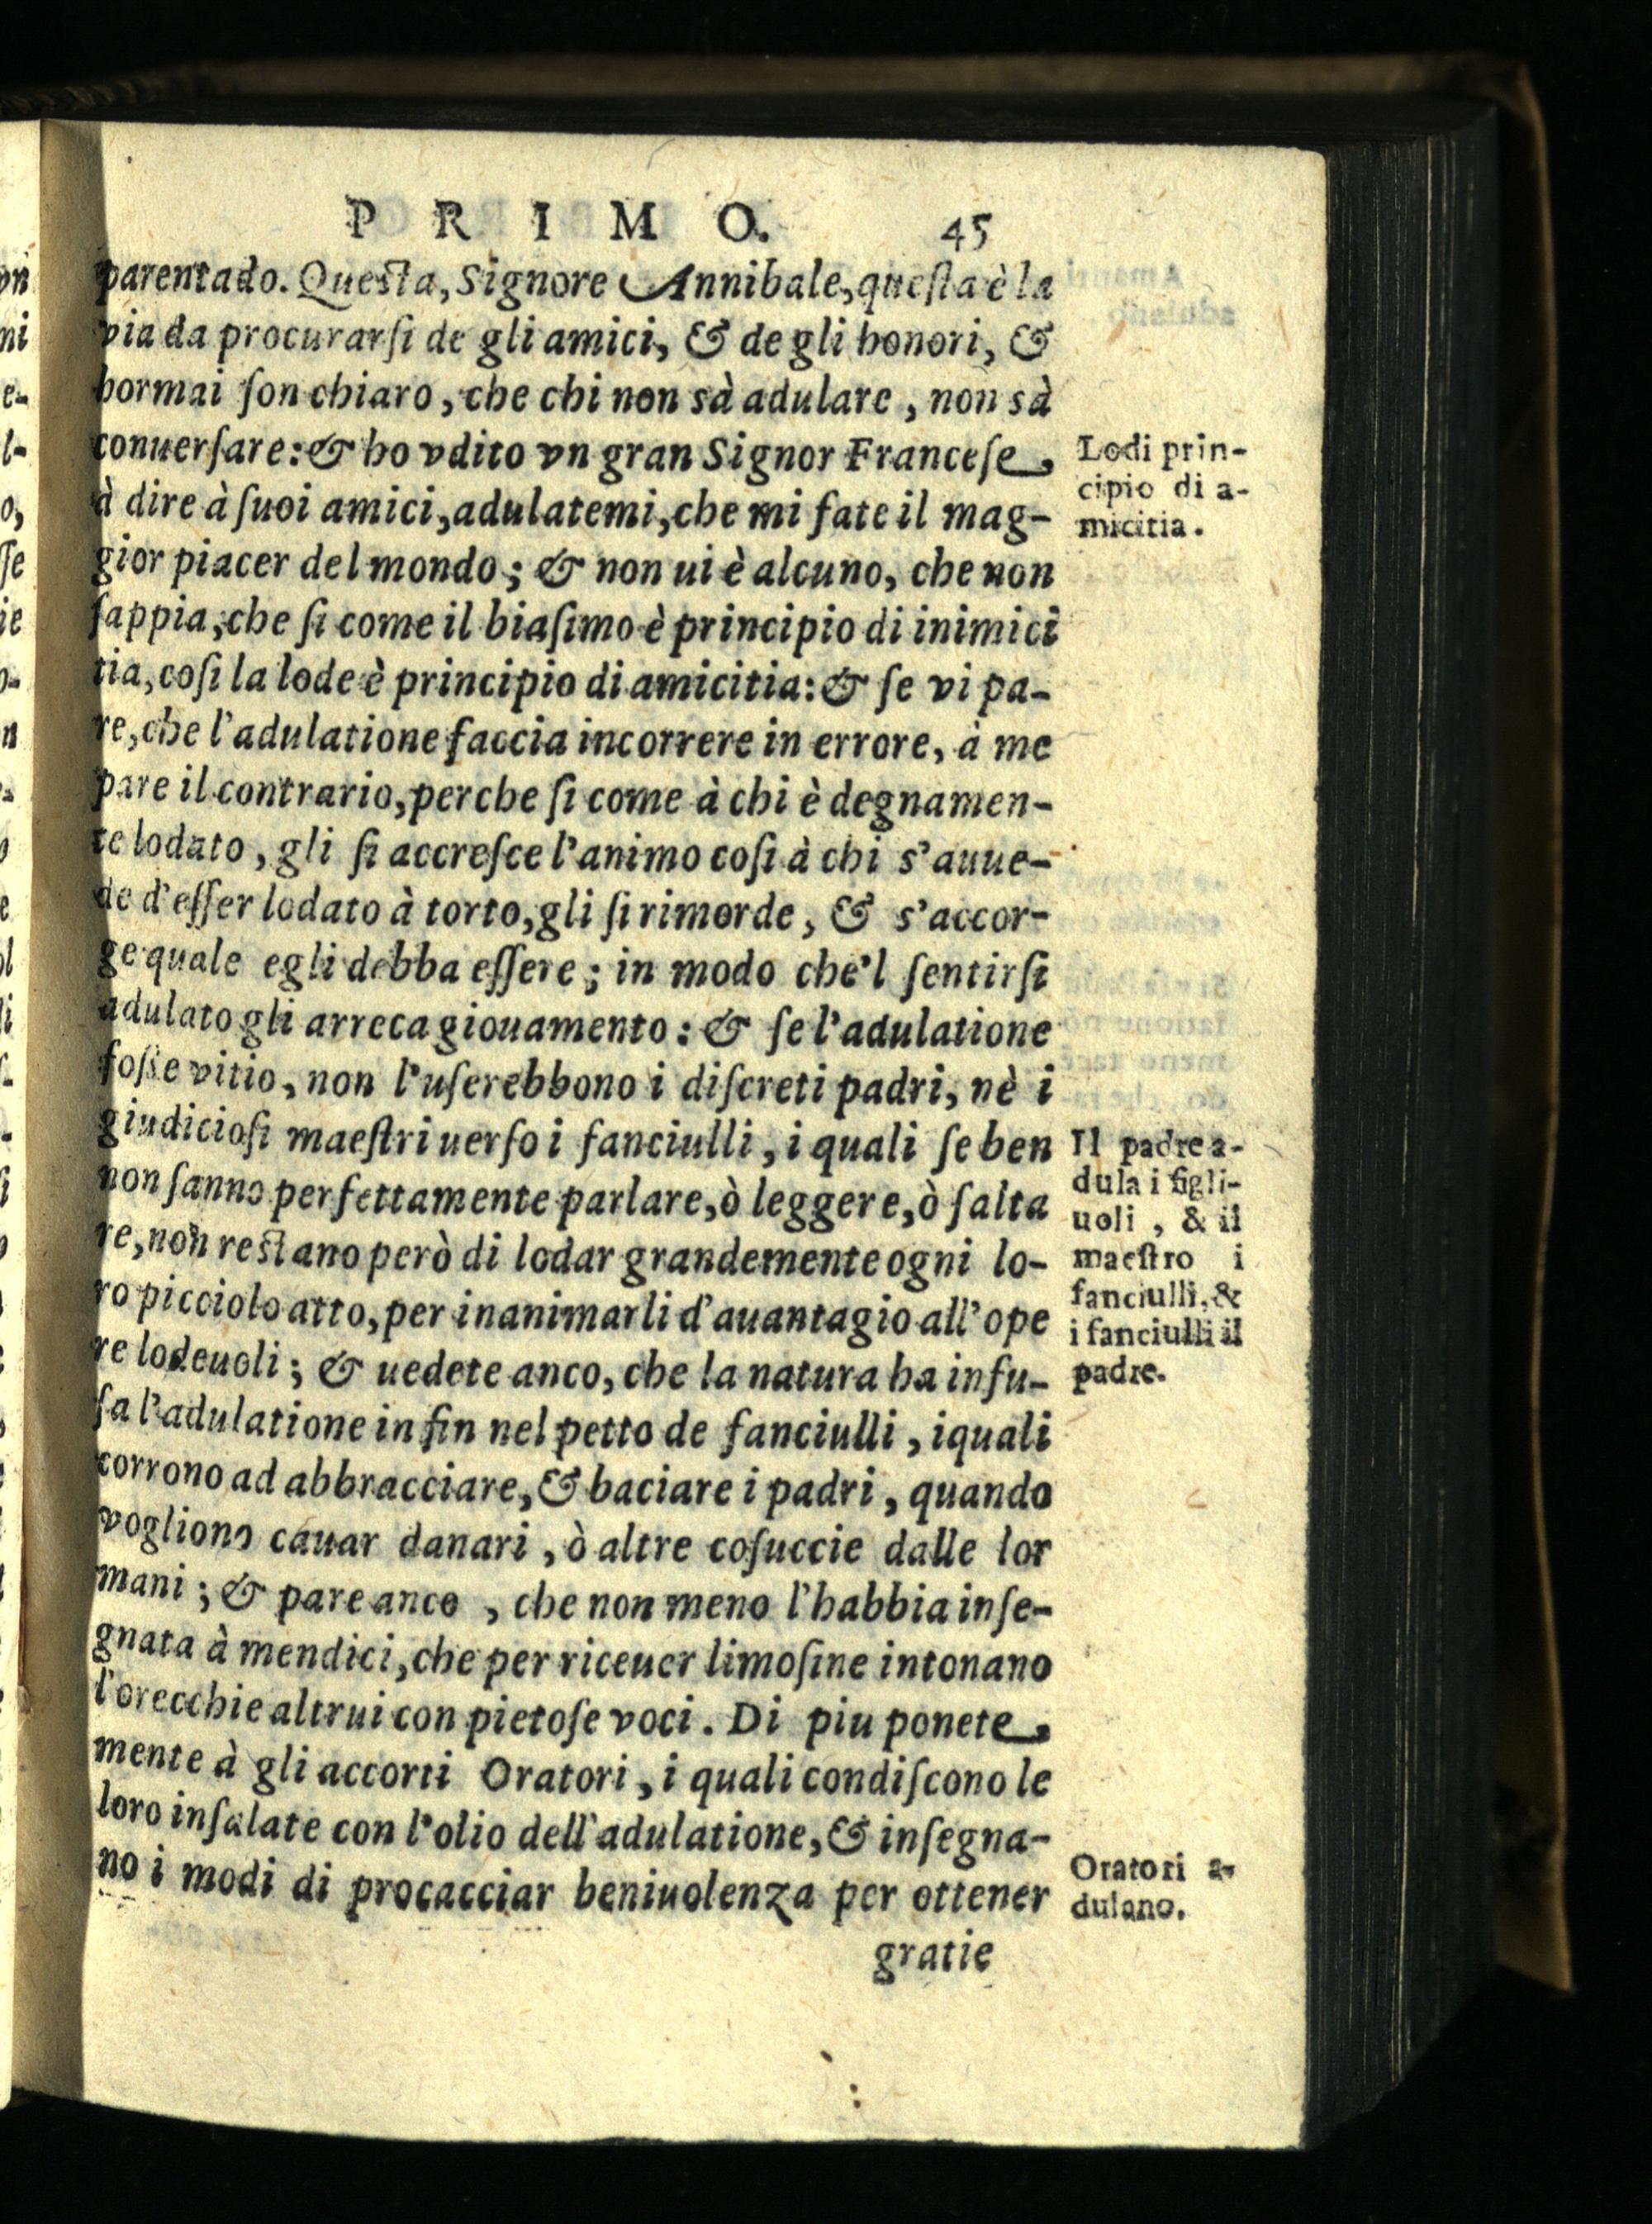 PRIMO. 45
parentado. Queſta, Signore Annibale, queſta è la
via da procurarſi de gli amici, & de gli honori, &
hormai ſon chiaro, che chi non sà adulare, non sà
conuerſare: & ho vdito vn gran Signor Franceſe,
à dire à ſuoi amici, adulatemi, che mi fate il mag-
gior piacer del mondo; & non ui è alcuno, che non
ſappia, che ſi come il biaſimo è principio di inimici
tia, coſi la lode è principio di amicitia: & ſe vi pa-
re, che l'adulatione faccia incorrere in errore, à me
pare il contrario, perche ſi come à chi è degnamen-
te lodato, gli ſi accreſce l'animo coſi à chi s'auue-
de d'eſſer lodato à torto, gli ſi rimorde, & s'accor-
ge quale egli debba eſſere; in modo che'l ſentirſi
adulato gli arreca giouamento: & ſe l'adulatione
foſſe vitio, non l'uſerebbono i diſcreti padri, nè i
giudicioſi maeſtri uerſo i fanciulli, i quali ſe ben
non ſanno perfettamente parlare, ò leggere, ò ſalta
re, non reſtano però di lodar grandemente ogni lo-
ro picciolo atto, per inanimarli d'auantagio all'ope
re lodeuoli; & uedete anco, che la natura ha infu-
ſa l'adulatione in fin nel petto de fanciulli, iquali
corrono ad abbracciare, & baciare i padri, quando
vogliono cauar danari, ò altre coſuccie dalle lor
mani; & pare anco, che non meno l'habbia inſe-
gnata à mendici, che per riceuer limoſine intonano
l'orecchie altrui con pietoſe voci. Di piu ponete,
mente à gli accorti Oratori, i quali condiſcono le
loro inſalate con l'olio dell'adulatione, & inſegna-
no i modi di procacciar beniuolenza per ottener
gratie
Lodi prin-
cipio di a-
micitia.
Il padre a-
dula i figli-
uoli, & il
maeſtro i
fanciulli, &
i fanciulli il
padre.
Oratori a-
dulano.